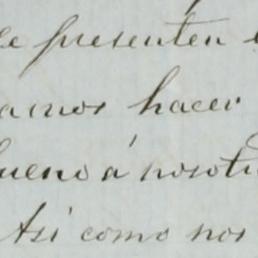 presenten
amos hacer
bueno á nosotr
Así como nos